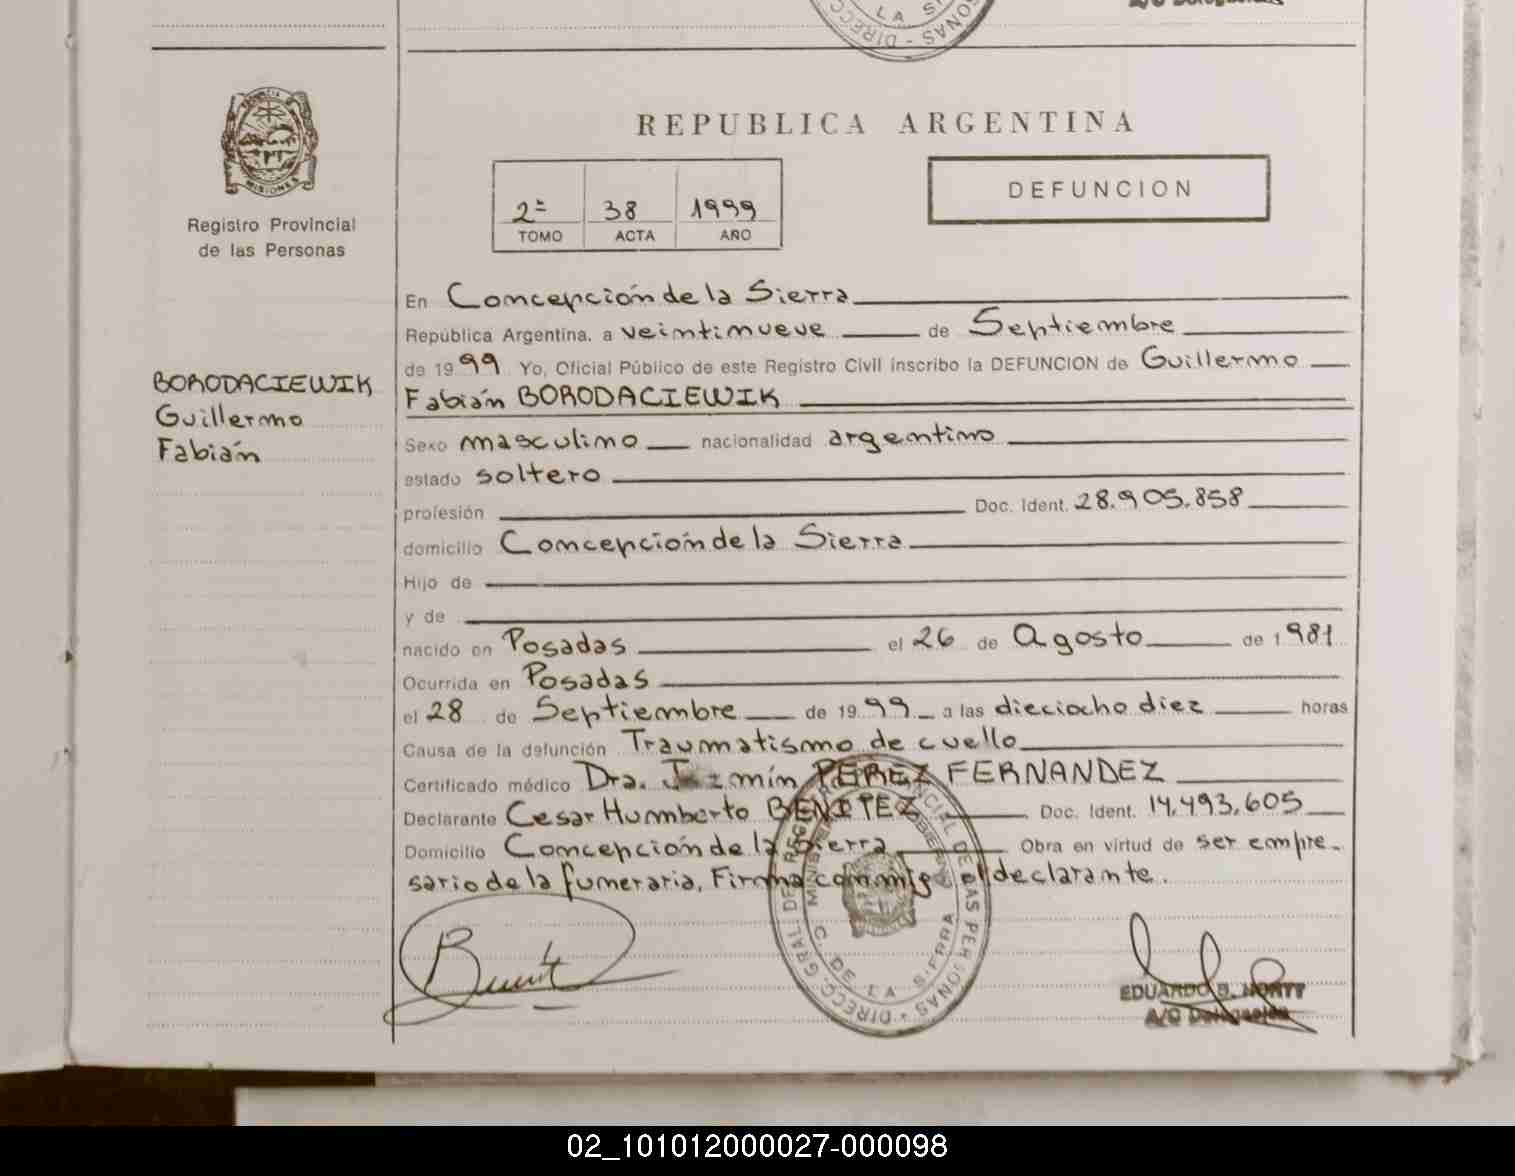 LA SI
DIRECC
SONAS
REPUBLICA ARGENTINA
PROVINCIA
MISIONES
Registro Provincial
de las Personas
2º 38 1999
TOMO ACTA AÑO
DEFUNCION
En Concepción de la Sierra
República Argentina, a veintinueve de Septiembre
de 1999 Yo, Oficial Público de este Registro Civil inscribo la DEFUNCION de Guillermo
Fabián BORODACIEWIK
BORODACIEWIK
Guillermo
Fabián
Sexo masculino nacionalidad argentino
estado soltero
profesión Doc. Ident. 28.905.858
domicilio Concepción de la Sierra
Hijo de
y de
nacido en Posadas el 26 de Agosto de 1981
Ocurrida en Posadas
el 28 de Septiembre de 1999 a las dieciocho diez horas
Causa de la defunción Traumatismo de cuello
Certificado médico Dra. Jazmín PEREZ FERNANDEZ
Declarante Cesar Humberto BENITEZ Doc. Ident. 14.493.605
Domicilio Concepción de la Sierra Obra en virtud de ser empre-
sario de la funeraria. Firma conmigo el declarante.
DIRECC. GRAL DE REG PROVINCIAL DE LAS PERSONAS
MINISTERIO GOBIERNO
C. DE LA SIERRA
EDUARDO
A/C Delegación
02_101012000027-000098